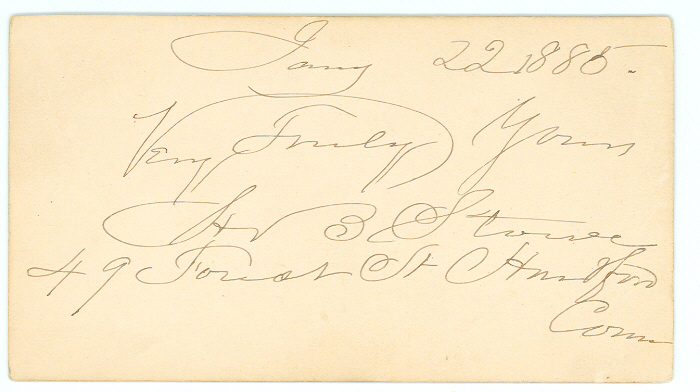 Jany 22 1885.
Very Truly Yours
H B Stowe
49 Forest St Hartford
Conn